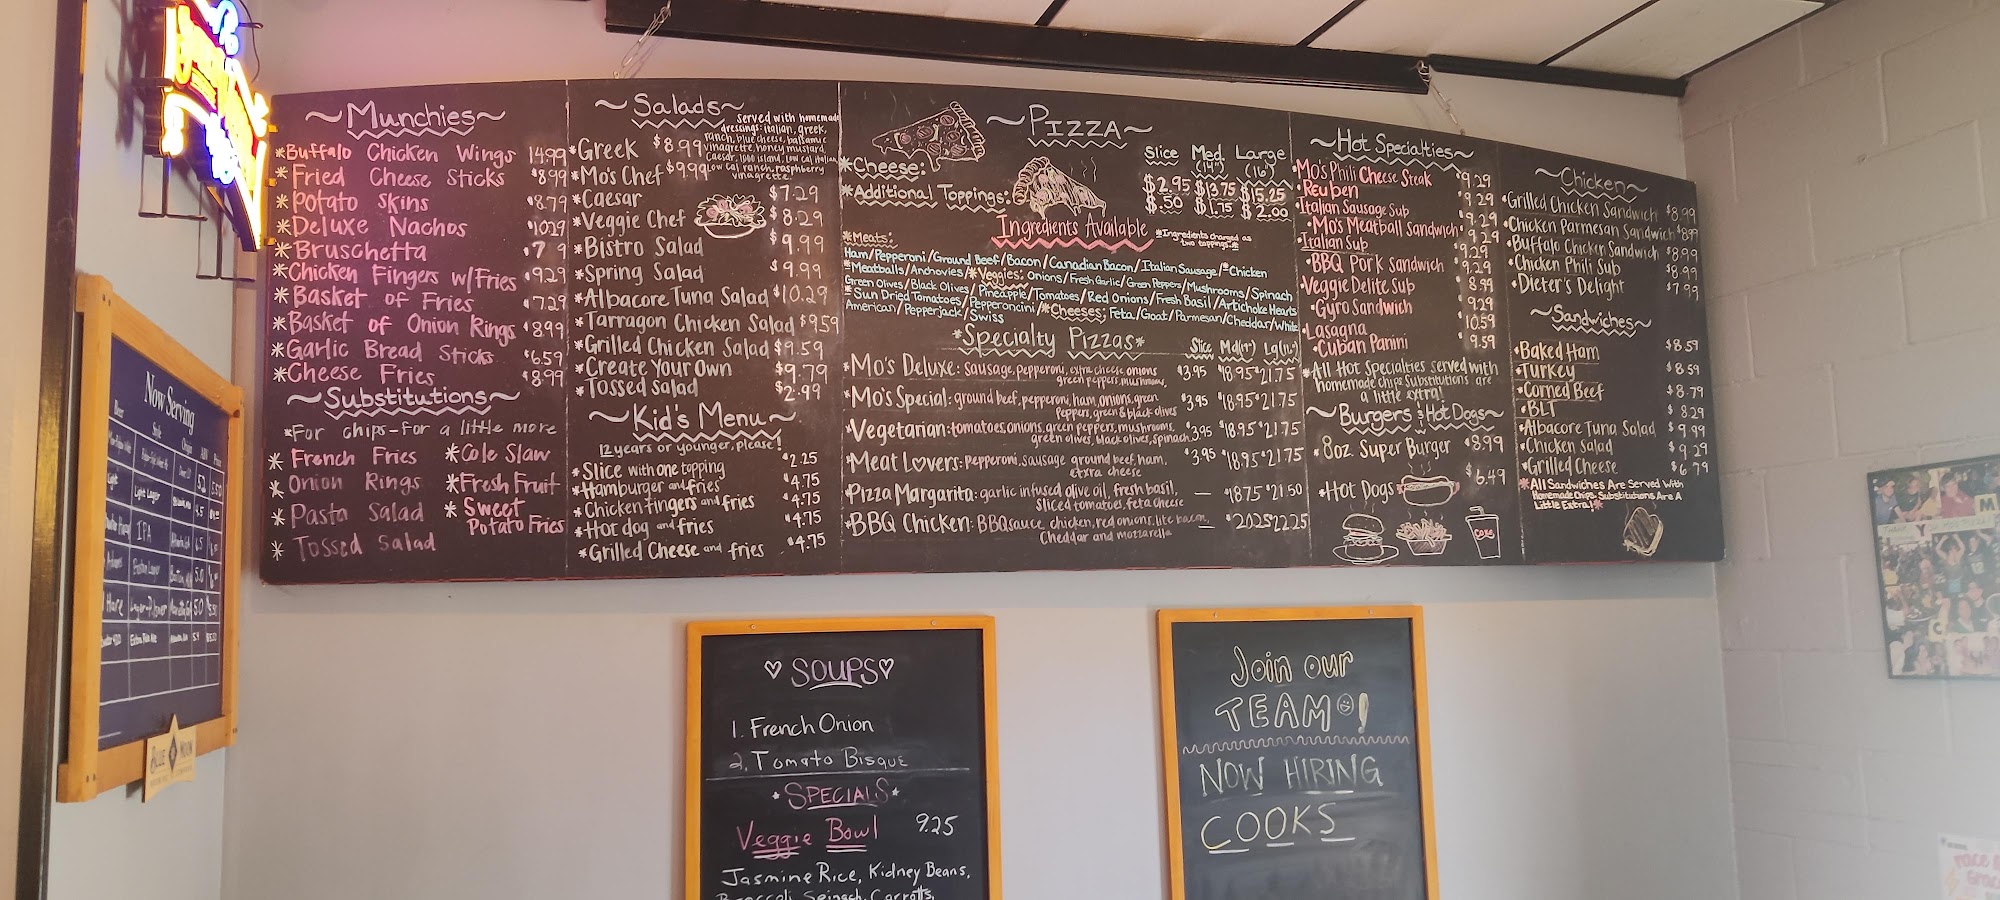 ~Munchies~
*Buffalo Chicken Wings 14.99
*Fried Cheese Sticks $8.99
*Potato Skins $8.79
*Deluxe Nachos $10.29
*Bruschetta
*Chicken Fingers w/Fries $9.29
*Basket of Fries $7.29
*Basket of Onion Rings $8.99
*Garlic Bread Sticks $6.59
*Cheese Fries $8.99
~Substitutions~
*For chips-for a little more
*French Fries *Cole Slaw
*Onion Rings *Fresh Fruit
*Pasta Salad *Sweet
Potato Fries
*Tossed Salad
~Salads~
Served with homemade
dressings: italian, greek,
ranch, blue cheese, balsamic
vinagrette, honey mustard,
Caesar, 1000 island, Low Cal italian,
Low Cal ranch, raspberry
vinagrette.
*Greek $8.99
*Mo's Chef $9.99
*Caesar $7.29
*Veggie Chef $8.29
*Bistro Salad $9.99
*Spring Salad $9.99
*Albacore Tuna Salad $10.29
*Tarragon Chicken Salad $9.59
*Grilled Chicken Salad $9.59
*Create Your Own $9.79
*Tossed Salad $2.99
~Kid's Menu~
12 years or younger, please!
*Slice with one topping $2.25
*Hamburger and fries $4.75
*Chicken fingers and fries $4.75
*Hot dog and fries $4.75
*Grilled Cheese and fries $4.75
~PIZZA~
Slice Med. (14") Large (16")
*Cheese: $2.95 $13.75 $15.25
*Additional Toppings: $.50 $1.75 $2.00
Ingredients Available
*Ingredients charged as
two toppings.*
*Meats:
Ham/Pepperoni/Ground Beef/Bacon/Canadian Bacon/Italian Sausage/*Chicken
*Meatballs/Anchovies/*Veggies: Onions/Fresh Garlic/Green Peppers/Mushrooms/Spinach
Green Olives/Black Olives/Pineapple/Tomatoes/Red Onions/Fresh Basil/Artichoke Hearts
*Sun Dried Tomatoes/Pepperoncini/*Cheeses: Feta/Goat/Parmesan/Cheddar/White
American/Pepperjack/Swiss
*Specialty Pizzas*
Slice
*Mo's Deluxe: sausage, pepperoni, extra cheese, onions $3.95 $18.95 $21.75
green peppers, mushrooms,
*Mo's Special: ground beef, pepperoni, ham, onions, green $3.95 $18.95 $21.75
Peppers, green & black olives
*Vegetarian: tomatoes, onions, green peppers, mushrooms, $3.95 $18.95 $21.75
green olives, black olives, spinach
*Meat Lovers: pepperoni, sausage ground beef, ham, $3.95 $18.95 $21.75
extra cheese
*Pizza Margarita: garlic infused olive oil, fresh basil, — $18.75 $21.50
Sliced tomatoes, feta cheese
*BBQ Chicken: BBQ sauce, chicken, red onions, lite bacon, — $20.25 $22.25
Cheddar and mozzarella
~Hot Specialties~
*Mo's Phili Cheese Steak $9.29
*Reuben $9.29
*Italian Sausage Sub $9.29
*Mo's Meatball Sandwich $9.29
*Italian Sub $9.29
*BBQ Pork Sandwich $9.29
*Veggie Delite Sub $8.99
*Gyro Sandwich $9.29
*Lasagna $10.59
*Cuban Panini $9.59
*All Hot Specialties served with
homemade chips. Substitutions are
a little extra!
~Burgers & Hot Dogs~
*8oz. Super Burger $8.99
*Hot Dogs $6.49
Coke
~Chicken~
*Grilled Chicken Sandwich $8.99
*Chicken Parmesan Sandwich $8.99
*Buffalo Chicken Sandwich $8.99
*Chicken Phili Sub $8.99
*Dieter's Delight $7.99
~Sandwiches~
*Baked Ham $8.59
*Turkey $8.59
*Corned Beef $8.79
*BLT $8.29
*Albacore Tuna Salad $9.99
*Chicken Salad $9.29
*Grilled Cheese $6.79
*All Sandwiches Are Served With
Homemade Chips. Substitutions Are A
Little Extra!*
Now Serving
Beer Style Origin ABV Price
Light Lager
IPA
BLUE MOON
♡SOUPS♡
1. French Onion
2. Tomato Bisque
*SPECIALS*
Veggie Bowl 9.25
Jasmine Rice, Kidney Beans,
Broccoli, Spinach, Carrots,
Join our
TEAM!
NOW HIRING
COOKS